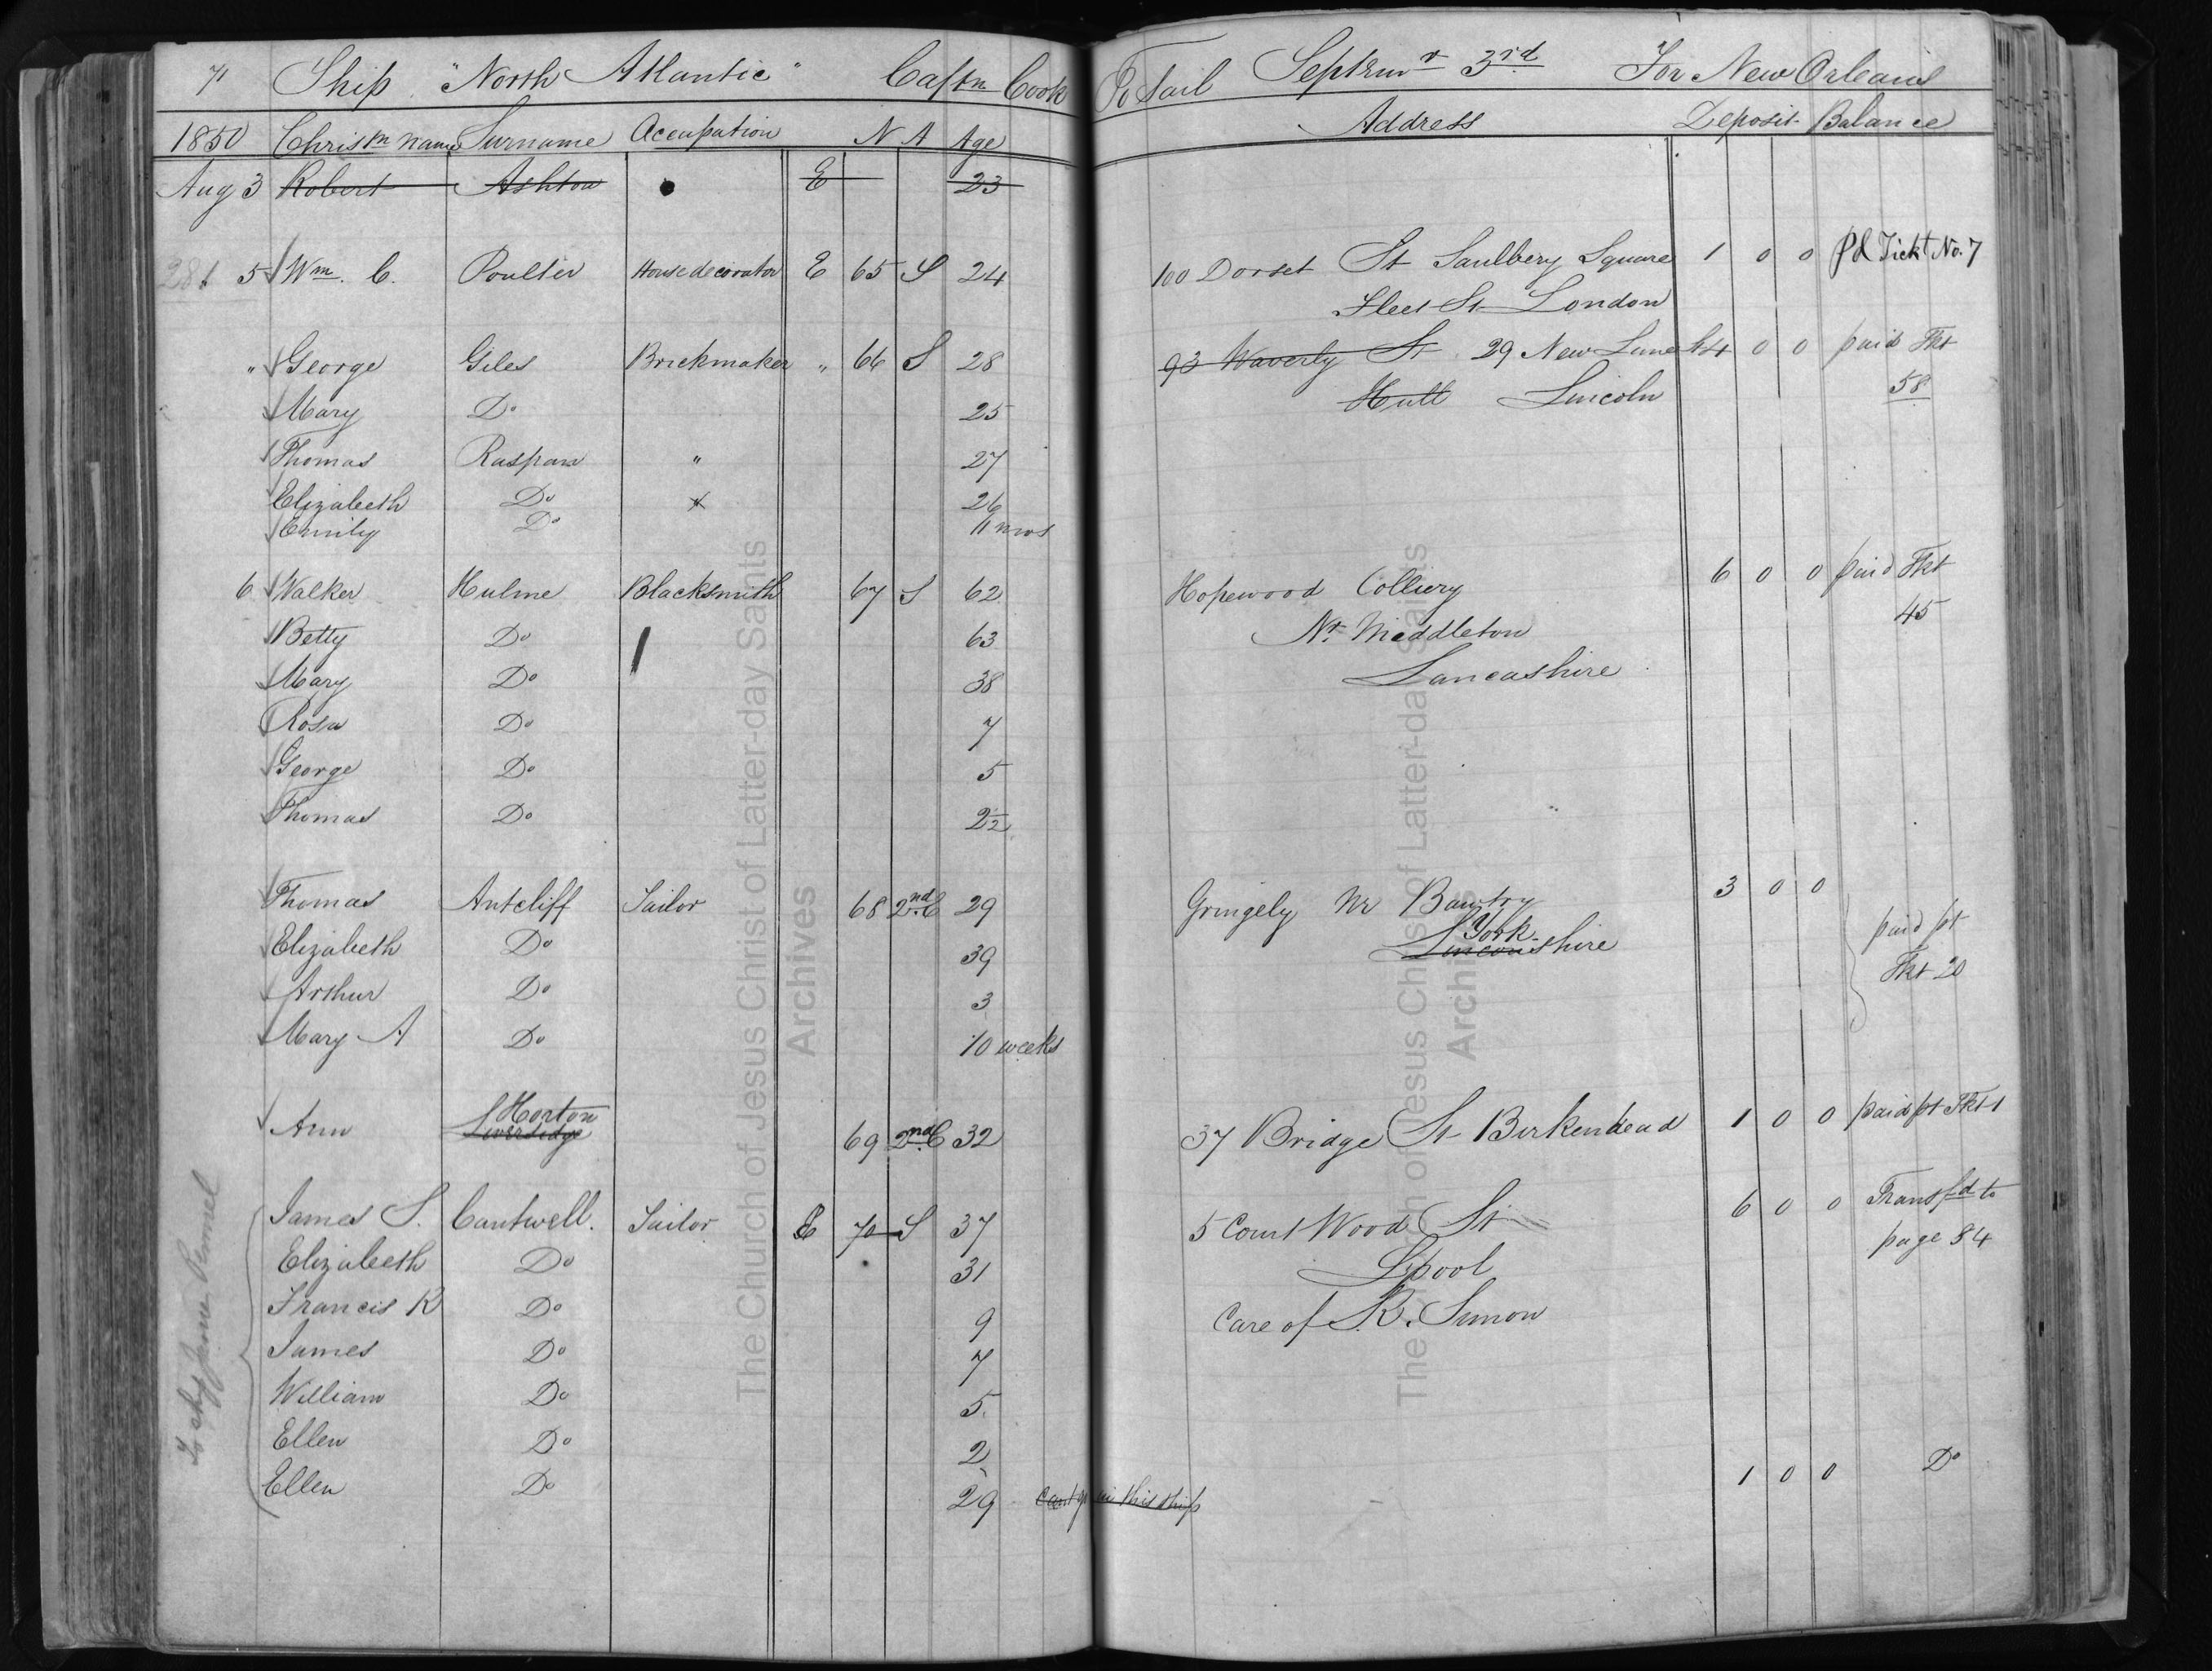 71 Ship "North Atlantic" Captn Cook To Sail Septemr 3rd For New Orleans
1850 Christn Name Surname Occupation N A Age Address Deposit Balance
Aug 3 Robert Ashton E 23
281 5 Wm. C. Poulter House decorator E 65 S 24 100 Dorset St Saulbery Square 1 0 0 Pd Tickt No. 7
Fleet St London
" George Giles Brickmaker " 66 S 28 93 Waverly St 29 New Lane St 4 0 0 paid Tkt
Mary Do 25 Hull Lincoln 58
Thomas Raspan " 27
Elizabeth Do 26
Emily Do 11 mos
6 Walker Hulme Blacksmith 67 S 62 Hopewood Colliery 6 0 0 paid Tkt
Betty Do 63 Nr Middleton 45
Mary Do 38 Lancashire
Rosa Do 7
George Do 5
Thomas Do 2½
Thomas Antcliff Tailor 68 2nd C 29 Gringely Nr Bawtry 3 0 0
Elizabeth Do 39 York Lincolnshire paid pt
Arthur Do 3 Tkt 20
Mary A Do 10 weeks
Horton
Ann Liversidge 69 2nd C 32 37 Bridge St Birkenhead 1 0 0 paid pt Tkt 1
James S. Cantwell. Tailor E 70 S 37 5 Court Wood St 6 0 0 Transfd to
Elizabeth Do 31 Lpool page 84
Francis R Do 9 Care of R. Simon
James Do 7
William Do 5
Ellen Do 2
Ellen Do 29 Cant go in this ship 1 0 0 Do
To ship
The Church of Jesus Christ of Latter-day Saints
Archives
The Church of Jesus Christ of Latter-day Saints
Archives